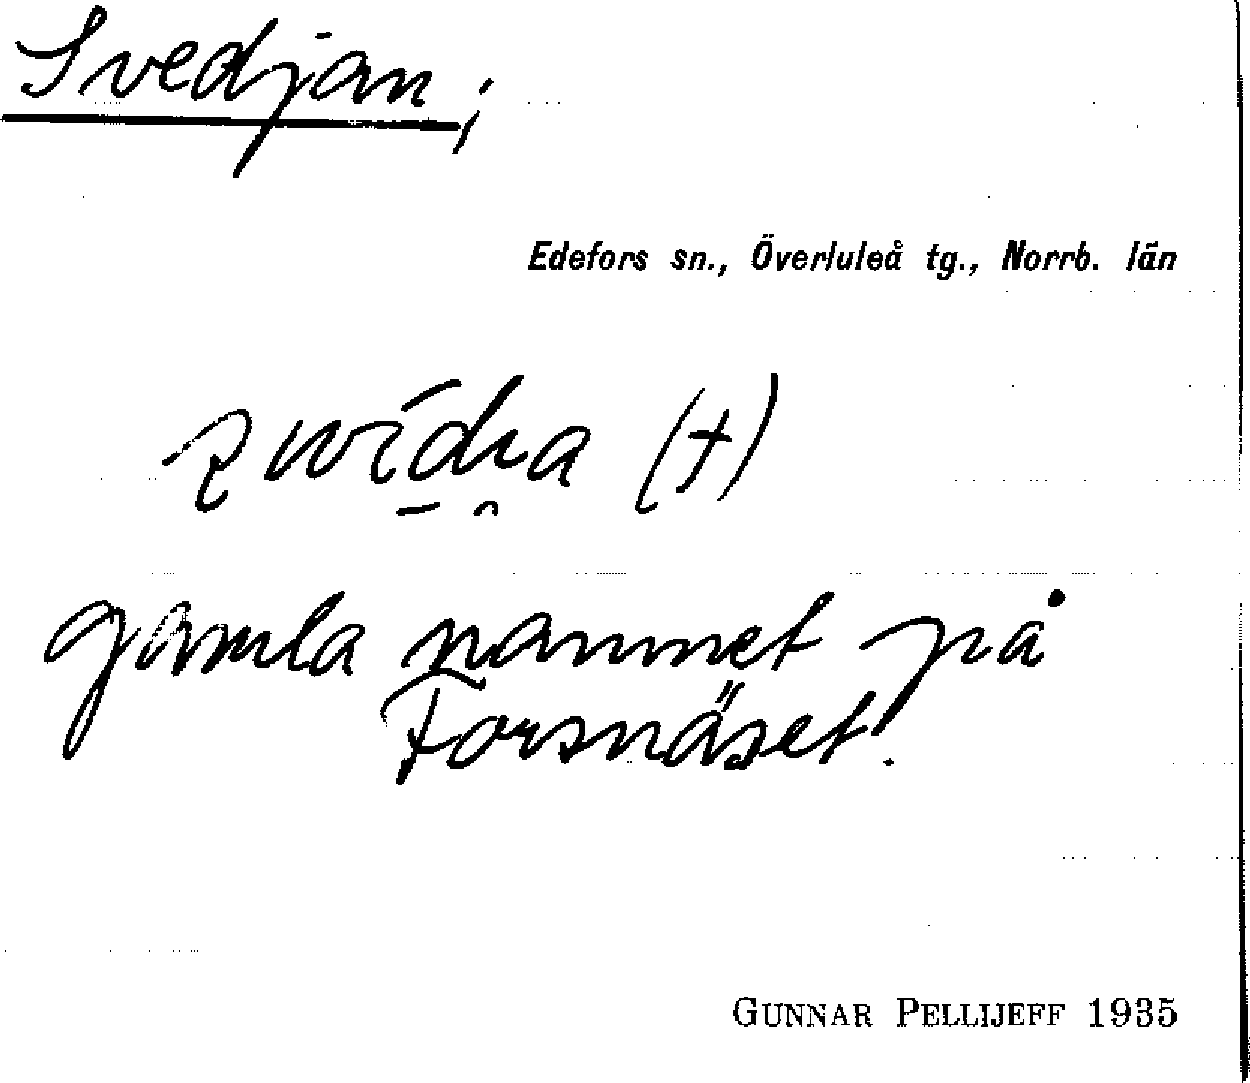 Svedjan;
Edefors sn., Överluleå tg., Norrb. län
(†)
gamla namnet på
Forsnäset.
GUNNAR PELLIJEFF 1935